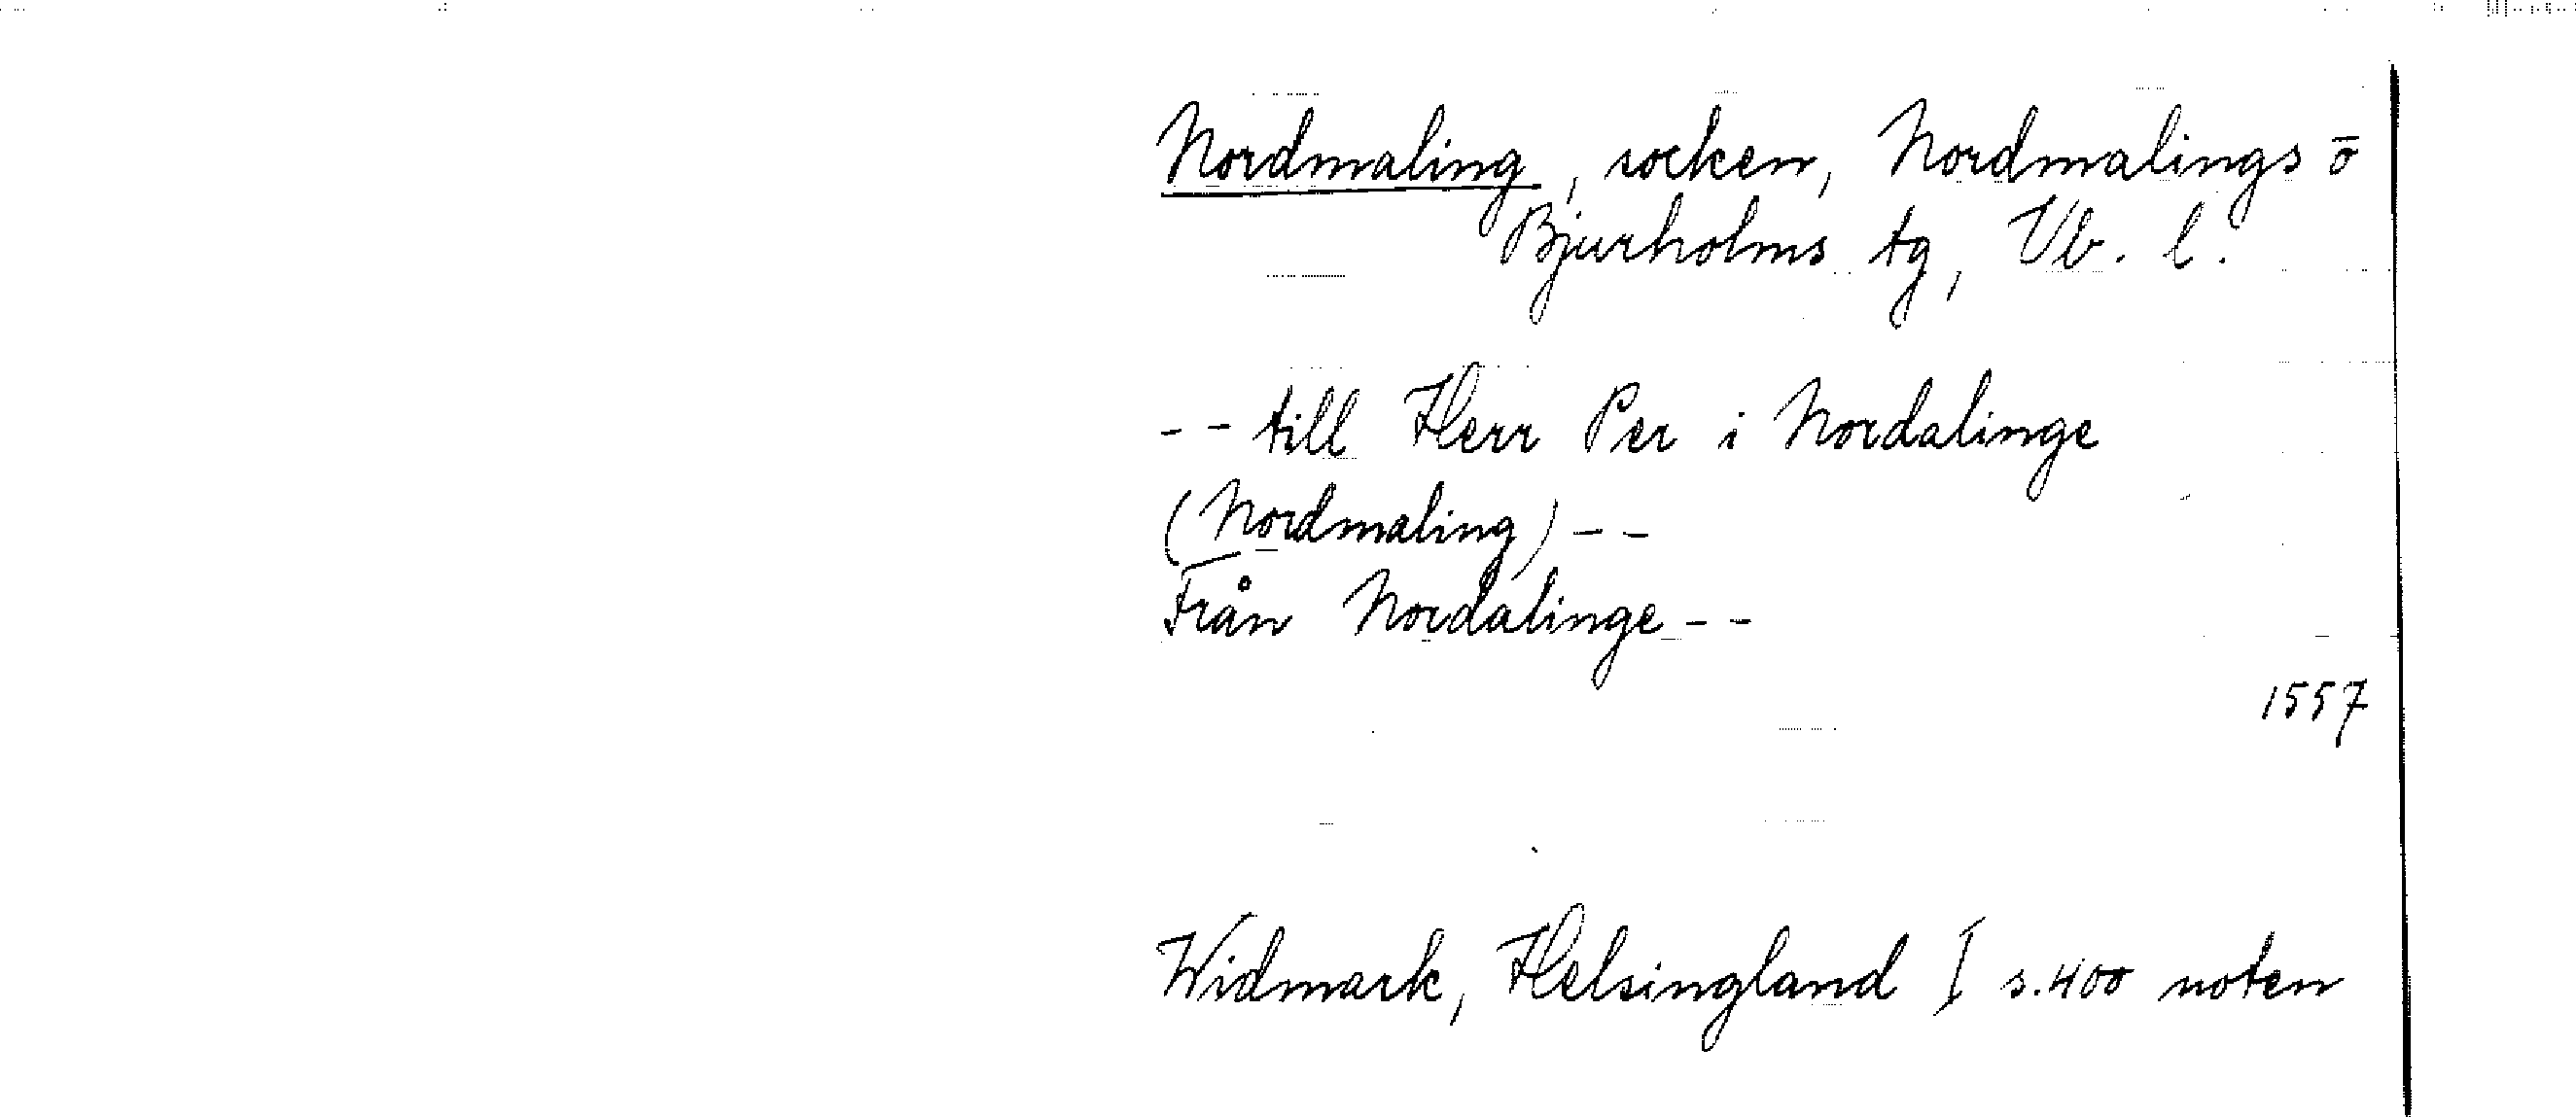 Nordmaling, socken, Nordmalings ō
Bjurholms tg, Vb. l.
-- till Herr Per i Nordalinge
(Nordmaling) --
Från Nordalinge --
1557
Widmark, Helsingland I s. 400 noten